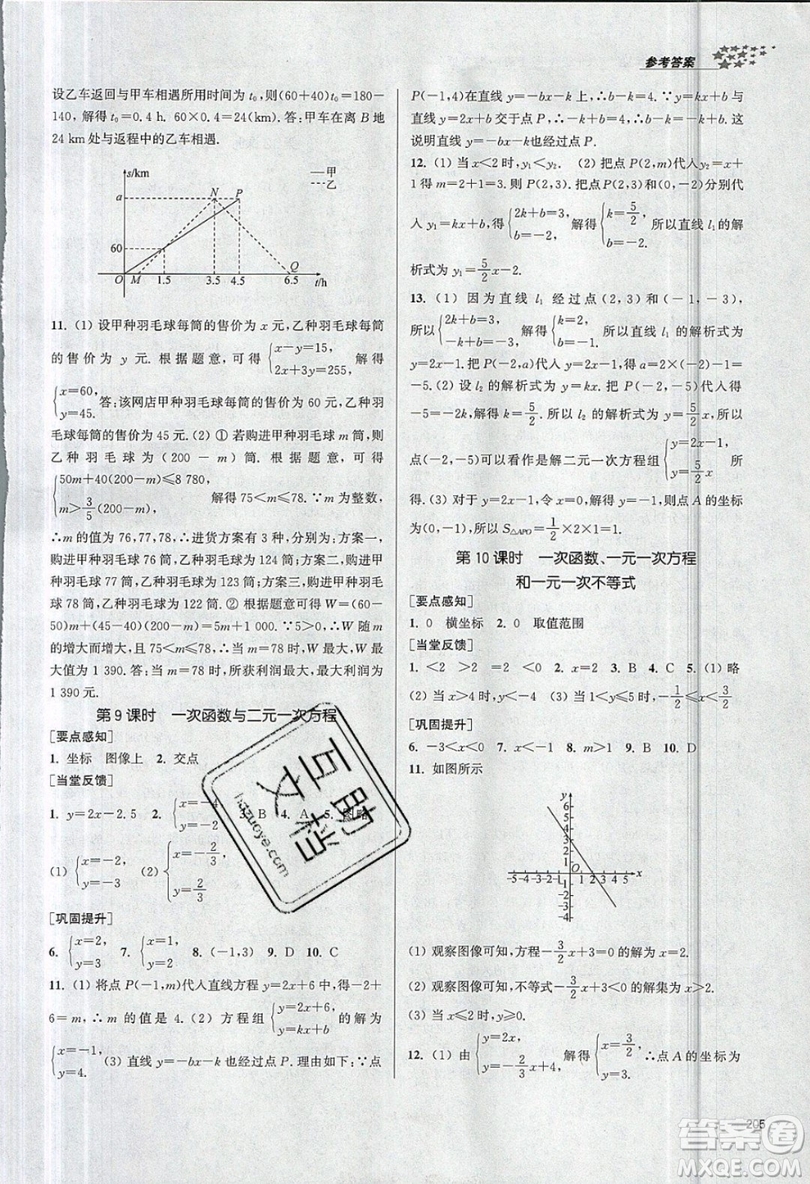 参考答案
设乙车返回与甲车相遇所用时间为 t₀,则(60+40)t₀=180-
140,解得 t₀=0.4 h. 60×0.4=24(km). 答:甲车在离 B 地
24 km 处与返程中的乙车相遇.
s/km
—甲
---乙
a
N
P
60
O
M
1.5
3.5
4.5
6.5
Q
t/h
11. (1) 设甲种羽毛球每筒的售价为 x 元,乙种羽毛球每筒
的售价为 y 元. 根据题意,可得{x-y=15, 2x+3y=255, 解得
{x=60, y=45. 答:该网店甲种羽毛球每筒的售价为 60 元,乙种羽
毛球每筒的售价为 45 元. (2) ① 若购进甲种羽毛球 m 筒,则
乙种羽毛球为(200-m)筒. 根据题意,可得
{50m+40(200-m)≤8 780, m>3/5(200-m), 解得 75<m≤78. ∵m 为整数,
∴m 的值为 76,77,78,∴进货方案有 3 种,分别为:方案一,
购进甲种羽毛球 76 筒,乙种羽毛球为 124 筒;方案二,购进甲
种羽毛球 77 筒,乙种羽毛球为 123 筒;方案三,购进甲种羽毛
球 78 筒,乙种羽毛球为 122 筒. ② 根据题意可得 W=(60-
50)m+(45-40)(200-m)=5m+1 000. ∵5>0,∴W 随 m
的增大而增大,且 75<m≤78,∴当 m=78 时,W 最大,W
最大值为 1 390. 答:当 m=78 时,所获利润最大,最大利润为
1 390 元.
第 9 课时 一次函数与二元一次方程
[要点感知]
1. 坐标 图像上 2. 交点
[当堂反馈]
1. y=2x-2.5 2. {x=-4, y=-2 3. B 4. A 5. 图略
(1) {x=-2, y=-3 (2) {x=-2/3, y=-2/3
[巩固提升]
6. {x=2, y=3 7. {x=1, y=2 8. (-1,3) 9. D 10. C
11. (1) 将点 P(-1,m)代入直线方程 y=2x+6 中,得-2+
6=m,∴m 的值是 4. (2) 方程组{y=2x+6, y=kx+b 的解为
{x=-1, y=4. (3) 直线 y=-bx-k 也经过点 P. 理由如下:∵点
P(-1,4)在直线 y=-bx-k 上,∴b-k=4. ∵直线 y=kx+b
与直线 y=2x+6 交于点 P,∴-k+b=4,∴b-k=4. 这
说明直线 y=-bx-k 也经过点 P.
12. (1) 当 x<2 时,y₁<y₂. (2) 把点 P(2,m)代入 y₂=x+
1 得 m=3. 则 P(2,3). 把点 P(2,3)和(0,-2)分别代
入 y₁=kx+b,得{2k+b=3, b=-2, 解得{k=5/2, b=-2, 所以直线 l₁ 的解
析式为 y₁=5/2x-2.
13. (1) 因为直线 l₁ 经过点(2,3)和(-1,-3),
所以{2k+b=3, -k+b=-3, 解得{k=2, b=-1, 所以直线 l₁ 的解析式为
y=2x-1. 把 P(-2,a)代入 y=2x-1,得 a=2×(-2)-1=
-5. (2) 设 l₂ 的解析式为 y=kx. 把 P(-2,-5)代入 y=kx
得-5=-2k,解得 k=5/2. 所以 l₂ 的解析式为 y=5/2x. 所以
点(-2,-5)可以看作是解二元一次方程组{y=2x-1, y=5/2x 所
得. (3) 对于 y=2x-1,令 x=0,解得 y=-1,则点 A 的坐标
为(0,-1),所以 S△APO=1/2×2×1=1.
第 10 课时 一次函数、一元一次方程
和一元一次不等式
[要点感知]
1. 0 横坐标 2. 0 取值范围
[当堂反馈]
1. <2 >2 =2 2. <0 3. B 4. C 5. (1)略
(2) 当 x>4 时,y<0. (3) 当 1≤y<4 时,-1/2≤x≤3/2
[巩固提升]
6. -3<x<0 7. x>4 8. m>1 9. B 10. D
11. 如图所示
y
6
5
4
3
2
1
-5-4-3-2-1 0 1 2 3 4 5 x
-1
-2
-3
-4
(1) 观察图像可知,方程-3/2x+3=0 的解为 x=2.
(2) 观察图像可知,不等式-3/2x+3<0 的解集为 x>2.
(3) 当 x≤0 时,y≥3.
12. (1) 由{y=2x, y=-2/3x+4, 解得{x=3/2, y=3. ∴点 A 的坐标为
205
互助文档
hzzuoye.com
答案圈
MXQE.COM